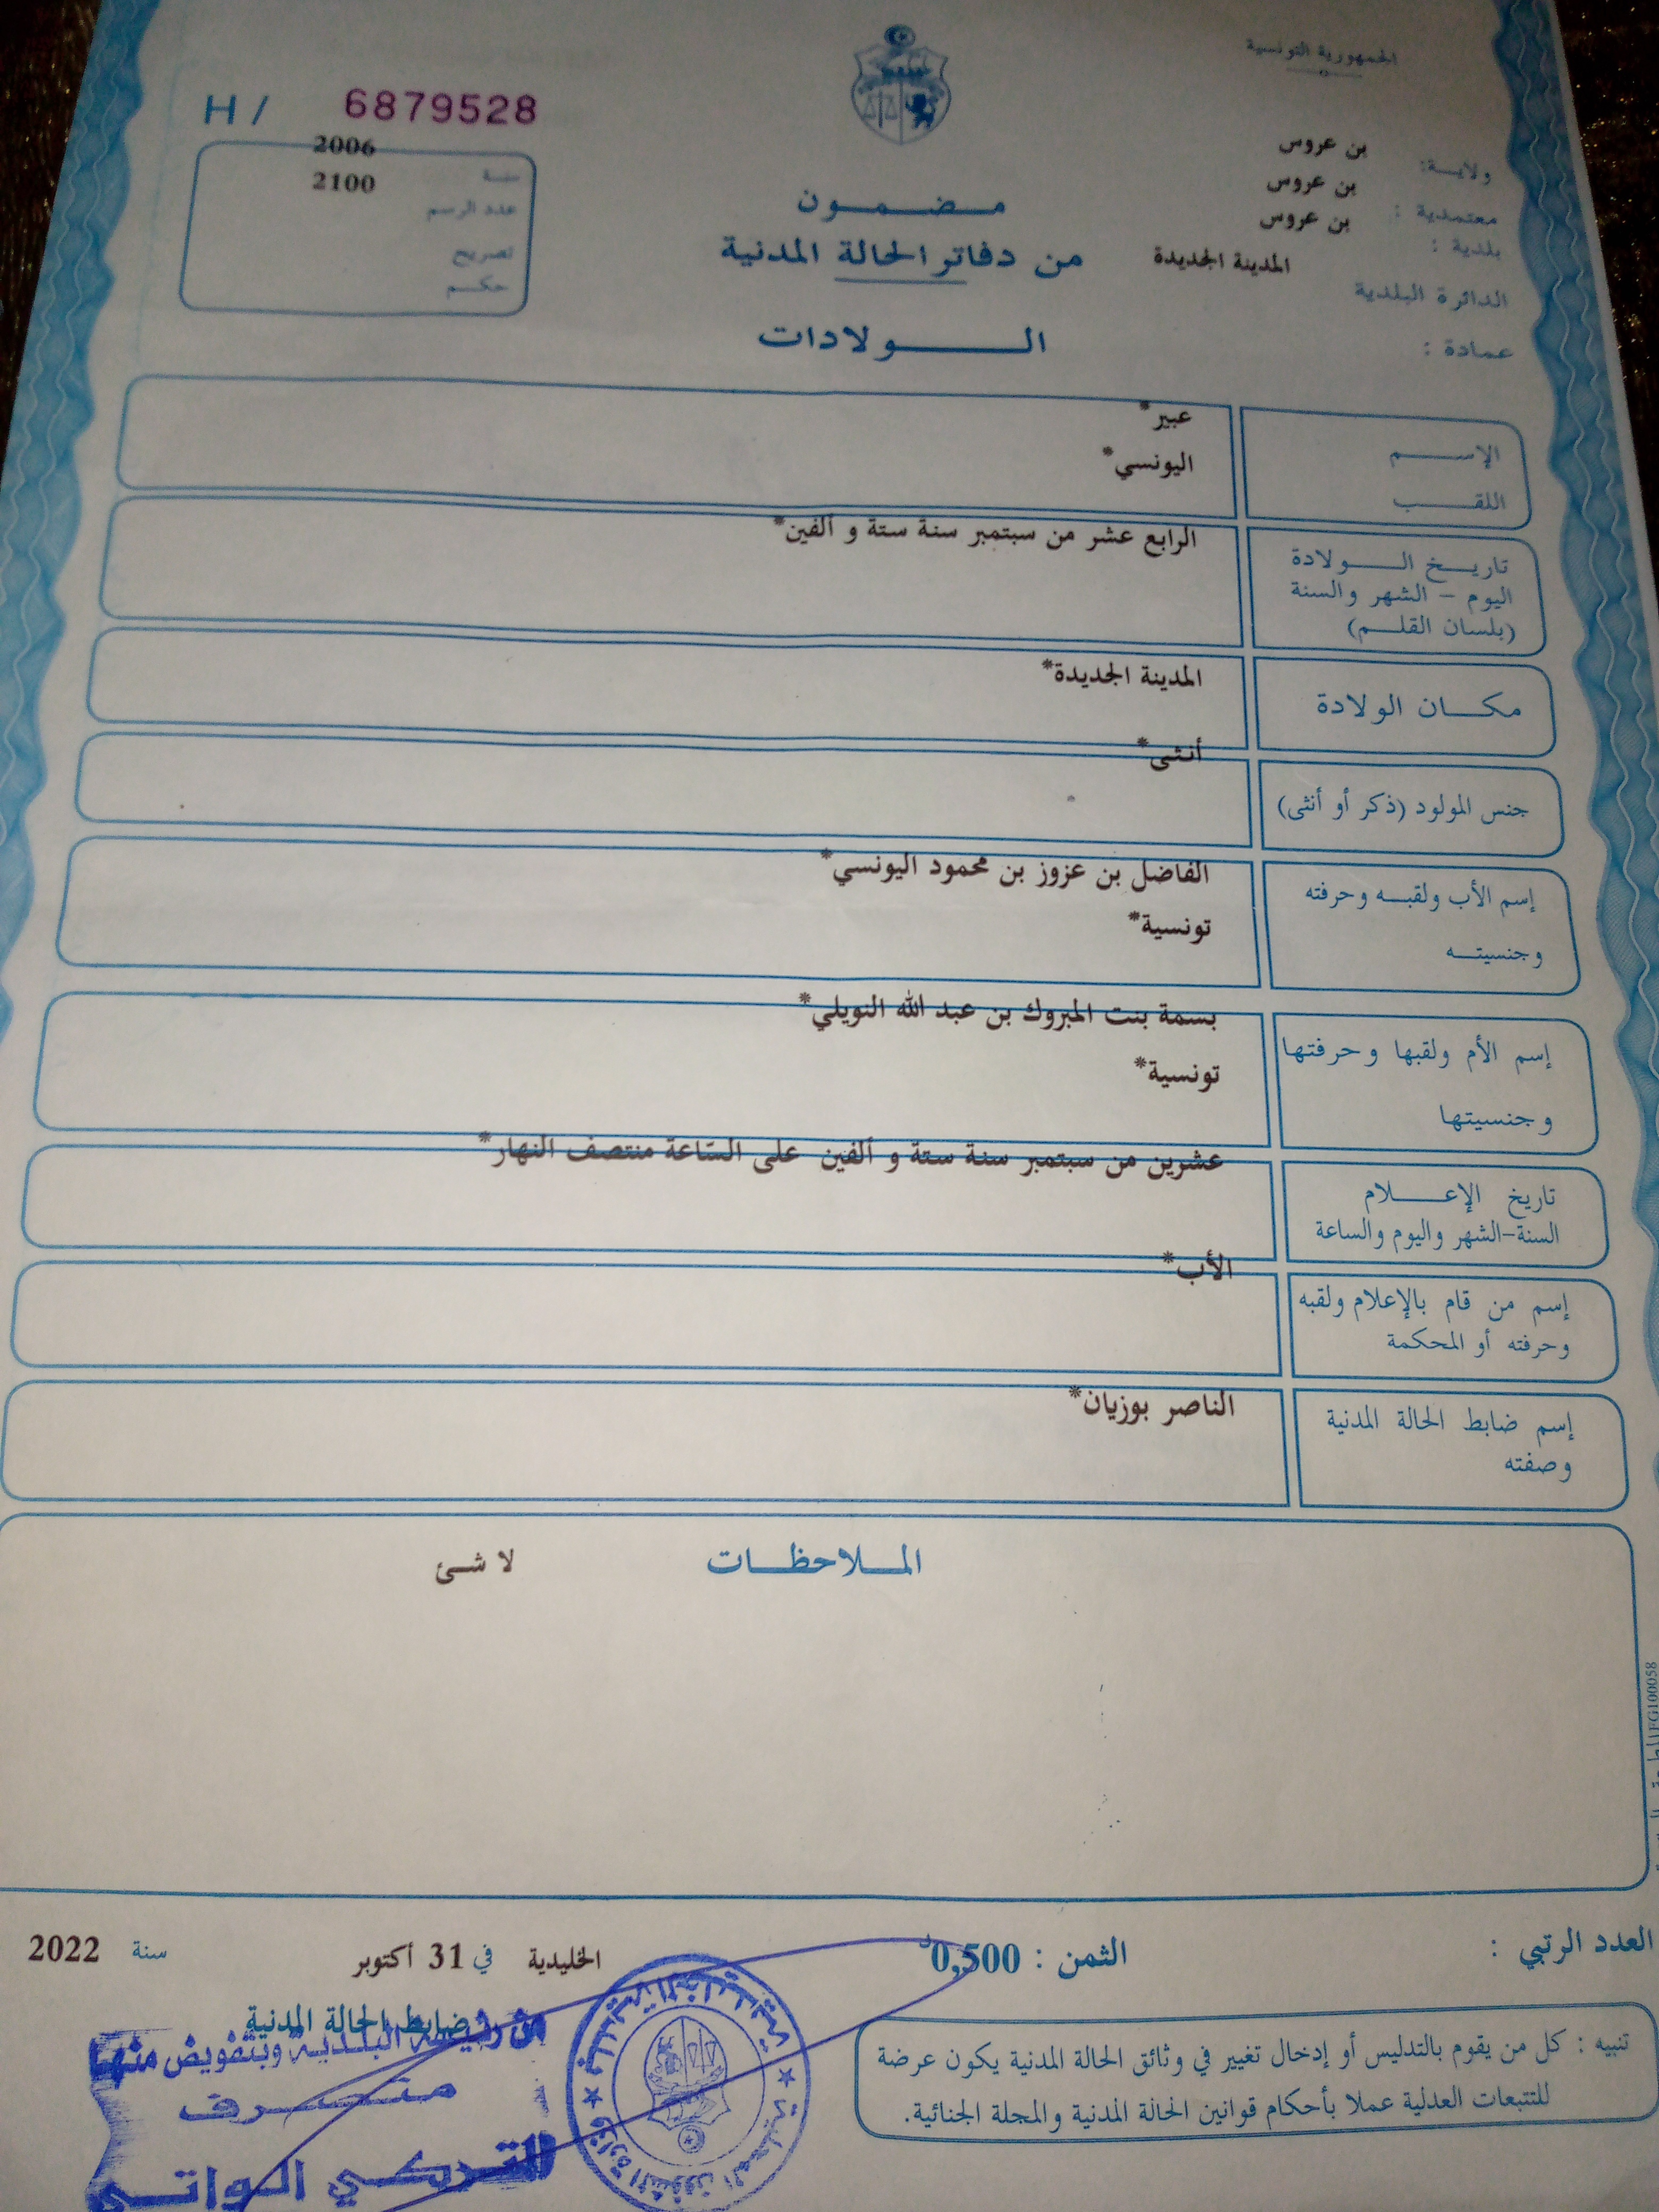 الجمهورية التونسية
H / 6879528
ولاية: بن عروس
معتمدية : بن عروس
بلدية : بن عروس
الدائرة البلدية المدينة الجديدة
عمادة :
سنة 2006
عدد الرسم 2100
تصريح
حكم
مضمون
من دفاتر الحالة المدنية
الولادات
الإسم عبير*
اللقب اليونسي*
تاريخ الولادة الرابع عشر من سبتمبر سنة ستة و ألفين*
اليوم - الشهر والسنة
(بلسان القلم)
مكان الولادة المدينة الجديدة*
جنس المولود (ذكر أو أنثى) أنثى*
إسم الأب ولقبه وحرفته الفاضل بن عزوز بن محمود اليونسي*
وجنسيته تونسية*
إسم الأم ولقبها وحرفتها بسمة بنت المبروك بن عبد الله النويلي*
وجنسيتها تونسية*
تاريخ الإعلام عشرين من سبتمبر سنة ستة و ألفين على الساعة منتصف النهار*
السنة-الشهر واليوم والساعة
إسم من قام بالإعلام ولقبه الأب*
وحرفته أو المحكمة
إسم ضابط الحالة المدنية الناصر بوزيان*
وصفته
الملاحظات لا شئ
العدد الرتبي :
الثمن : 0,500د
الخليدية في 31 أكتوبر سنة 2022
ضابط الحالة المدنية
عن رئيسة البلدية وبتفويض منها
متصرف
التركي الواتي
تنبيه : كل من يقوم بالتدليس أو إدخال تغيير في وثائق الحالة المدنية يكون عرضة
للتتبعات العدلية عملا بأحكام قوانين الحالة المدنية والمجلة الجنائية.
FG100058